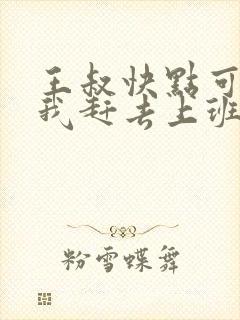 王叔快點可
我赶去上班
粉雪蝶舞